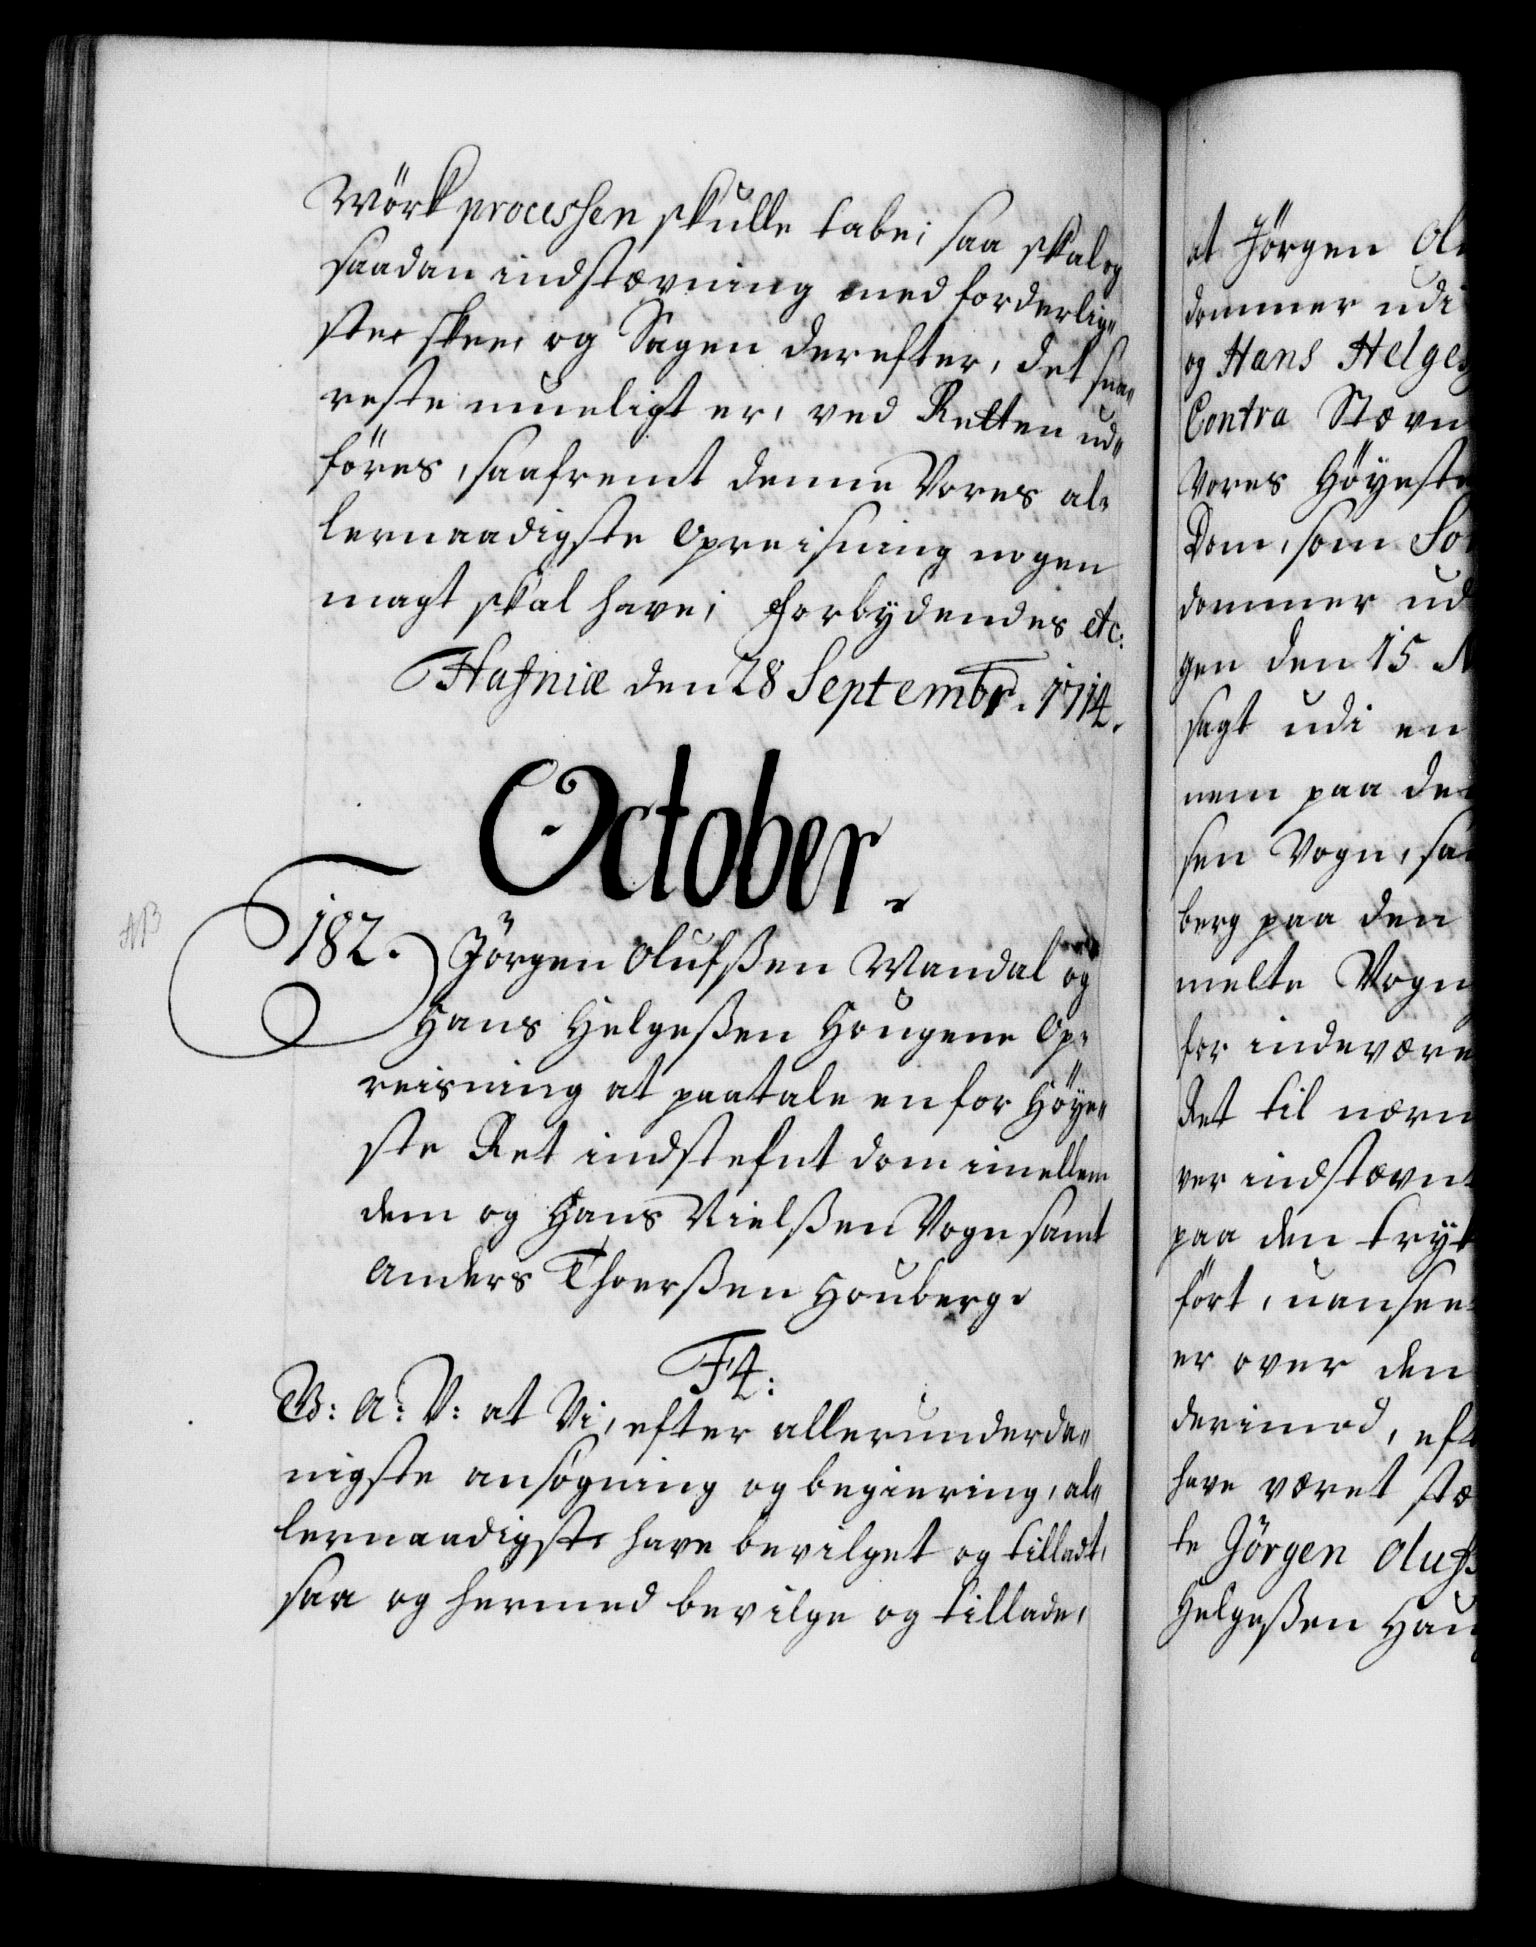 Wörk processen skulle tabe; saa skal og
saadan indstævning med forderlig„
ste skee, og Sagen derefter, det sna„
reste mueligt er, ved Retten ud„
föres, saafremt denne Vores al„
lernaadigste Opreisning nogen
magt skal have; Forbydendes etc:
Hafniæ den 28 Septembr. 1714.
October.
182. Jörgen Olufßen Wandal og
Hans Helgeßen Hougene Op„
reisning at paatale en for Höye„
ste Ret indstefnt dom imellem
dem og Hans Nielßen Vogn samt
Anders Thoerßen Houberg.
F4:
G: A: V: at Vi, efter allerunderda„
nigste ansøgning og begiering, al„
lernaadigst have bevilget og tilladt,
saa og hermed bevilge og tillade,
at Jörgen Ol
dommer udi
og Hans Helges
Contra Stævn
Vores Höyeste
Dom, som So
dommer ud
gen den 15 N
sagt udi en
nem paa de
sen Vogn, sa
berg paa den
melte Vogn
for indevære
Ret til nærv
ver indstævnt
paa den tryk
fört, uansee
er over den
derimod, eft
have været stæ
te Jörgen Oluf
Helgeßen Hau